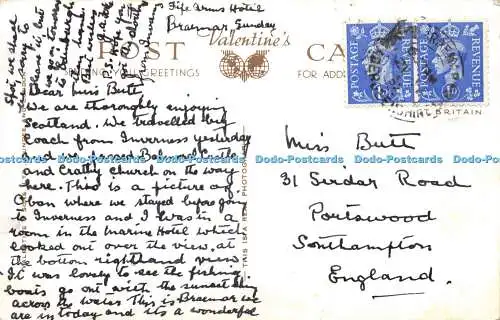 Fife Arms Hotel
Braemar Sunday
POST CARD
Valentine's
GREETINGS
FOR ADD
POSTAGE REVENUE
POSTAGE REVENUE
BRITAIN
Dear Miss Butt
We are thoroughly enjoying
Scotland. We travelled by
coach from Inverness yesterday
and we saw Balmoral Castle
and Crathy church on the way
here. This is a picture of
Oban where we stayed before going
to Inverness and I was in a
room in the Marine Hotel which
looked out over the view, at
the bottom righthand view
It was lovely to see the fishing
boats go out with the sunset
across the water This is Braemar we
are in today and its a wonderful
Spot, we are
to
leave it but
we go on tomorrow
to Edinburgh
P.S. Hope you
from Inverness
Miss Butt
31 Sirdar Road
Portswood
Southampton
England.
THIS IS A REAL PHOTOGRAPH
Dodo-Postcards Dodo-Postcards Dodo-Postcards Dodo-Postcards
Dodo-Postcards Dodo-Postcards Dodo-Postcards Dodo-Postcards